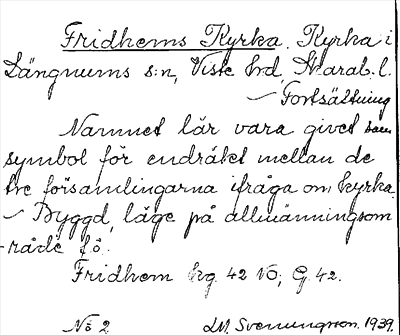 Fridhems Kyrka. Kyrka i
Längnums s:n, Viste hrd, Skarab. l.
– Fortsättning
Namnet lär vara givet som
symbol för endräkt mellan de
tre församlingarna ifråga om kyrka.
– Byggd, läge på allmänningsom-
råde f.ö.
Fridhem Eg. 42 NÖ; G. 42.
No 2 LM. Svenungson. 1939.